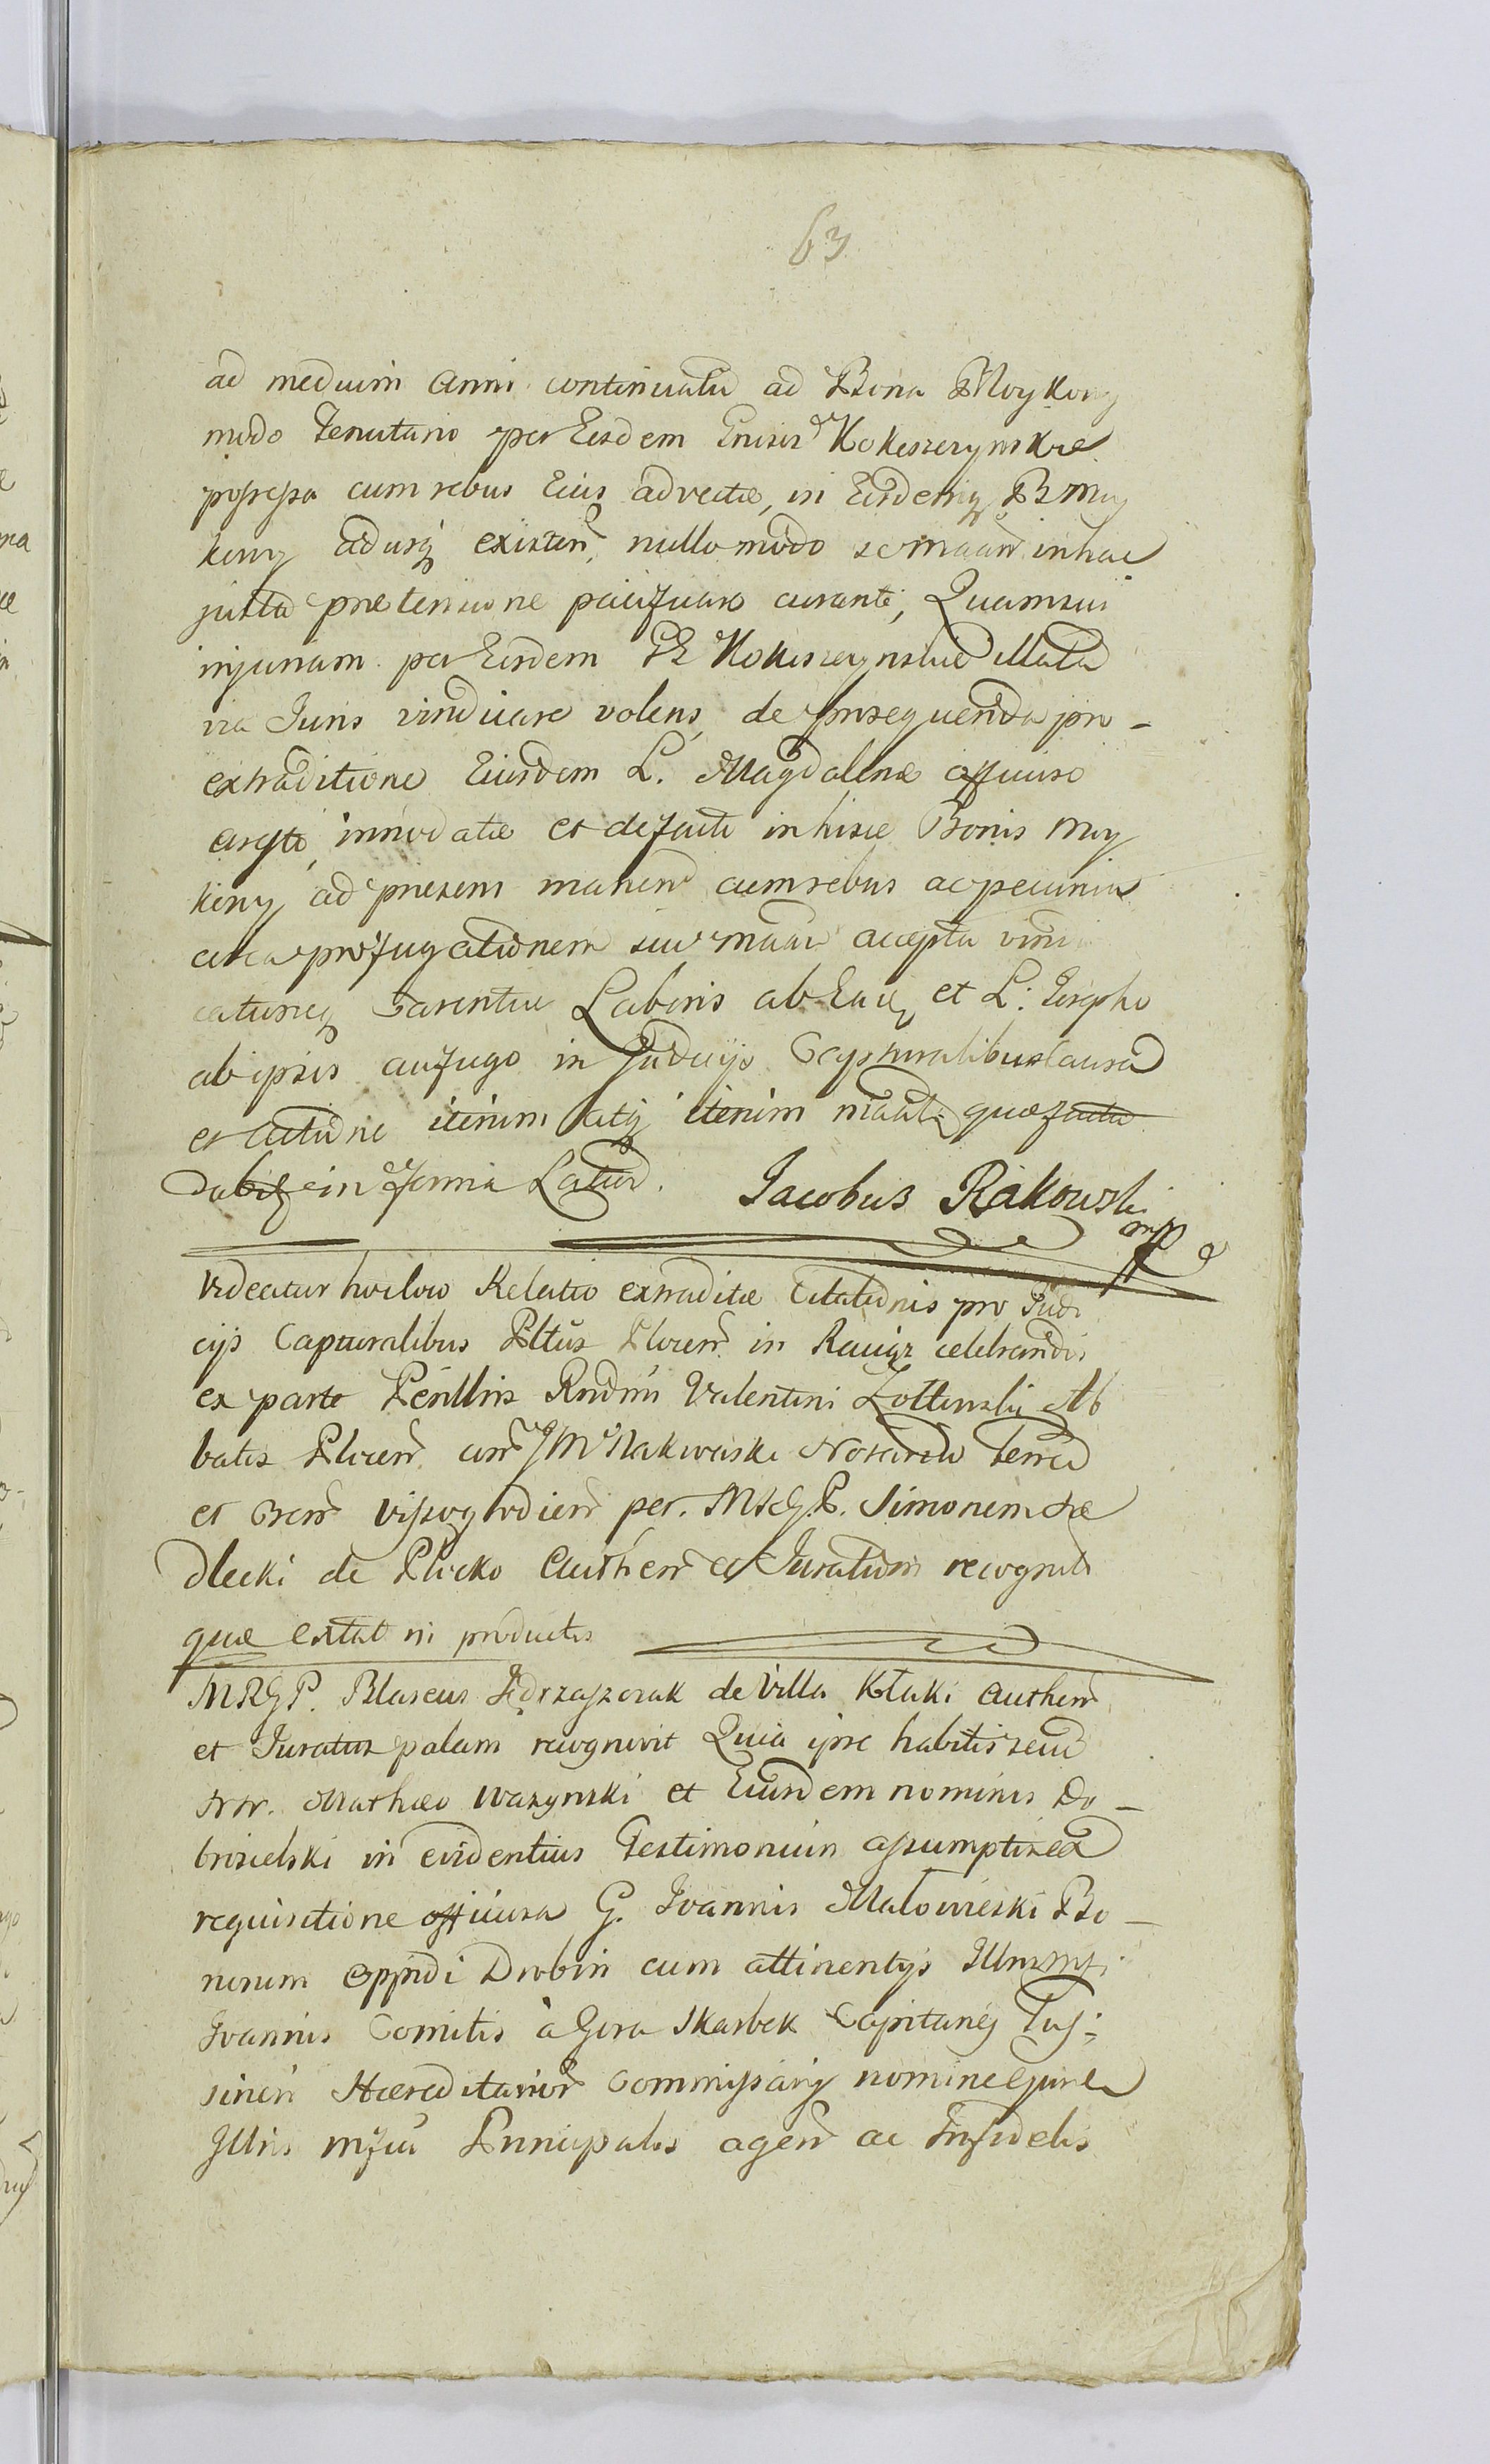 63
ad medium Anni continuata ad Bona Moykowy
modo Tenutario per Eosdem Gnisos Kokoszczynskie
possessa cum rebus Eius advectæ, in Eisdemq Bz Moy
kowy adusq existen nullo modo se maań in hac
justa prætensione pacificare curante, Quamsui
injuriam per Eosdem GG Kokoszczynskie illata
via Juris vindicare volens, de prosequenda pro-
extraditione Eiusdem L. Magdalenæ officiose
aresto innodatæ et defacto in hisce Bonis Moy
kowy ad præsens manen cum rebus ac pecunia
circa profugationem sui maań accepta
Parentiæ Laboris ab Eaq et L: Josepho
ab ipsis aufugo in Judicijs Capturalibus causa
et actione iterum atq iterum maań quæ facta
dabit in forma Latius. Jacobus Rakowski
mpp
Videatur hocloco Relatio extraditæ Citationis pro Judi
cijs Capturalibus Pltus Plocen in Raciąz celebrandis
ex parte Perillris Rndmi Valentini Zołtowski Ab
batis Plocen con JM Nakwaski Notario Terræ
et Cren Vissogrodien per. MRGP. Simonem Sie
dlecki de Płocko Authen et Juratum recognita
quæ extat in productis
MRGP. Blaseus Jędrzajzozak de Villa Kłaki Authen
et Juratus palam recognovit Quia ipse habitis secu
NN. Mathæo Wazynski et Eiusdem nominis Do-
brosielski in evidentius Testimonium assumptis ea
requisitione officiosa G. Joannis Małowieski Bo-
norum Oppidi Drobin cum attinentijs Illrmsi
Joannis Comitis à Gora Skarbek Capitanej Tusz-
sinen Hæreditarior Commissarij nomine jure
Jllris mgfci Principalis agen ac Infidelis